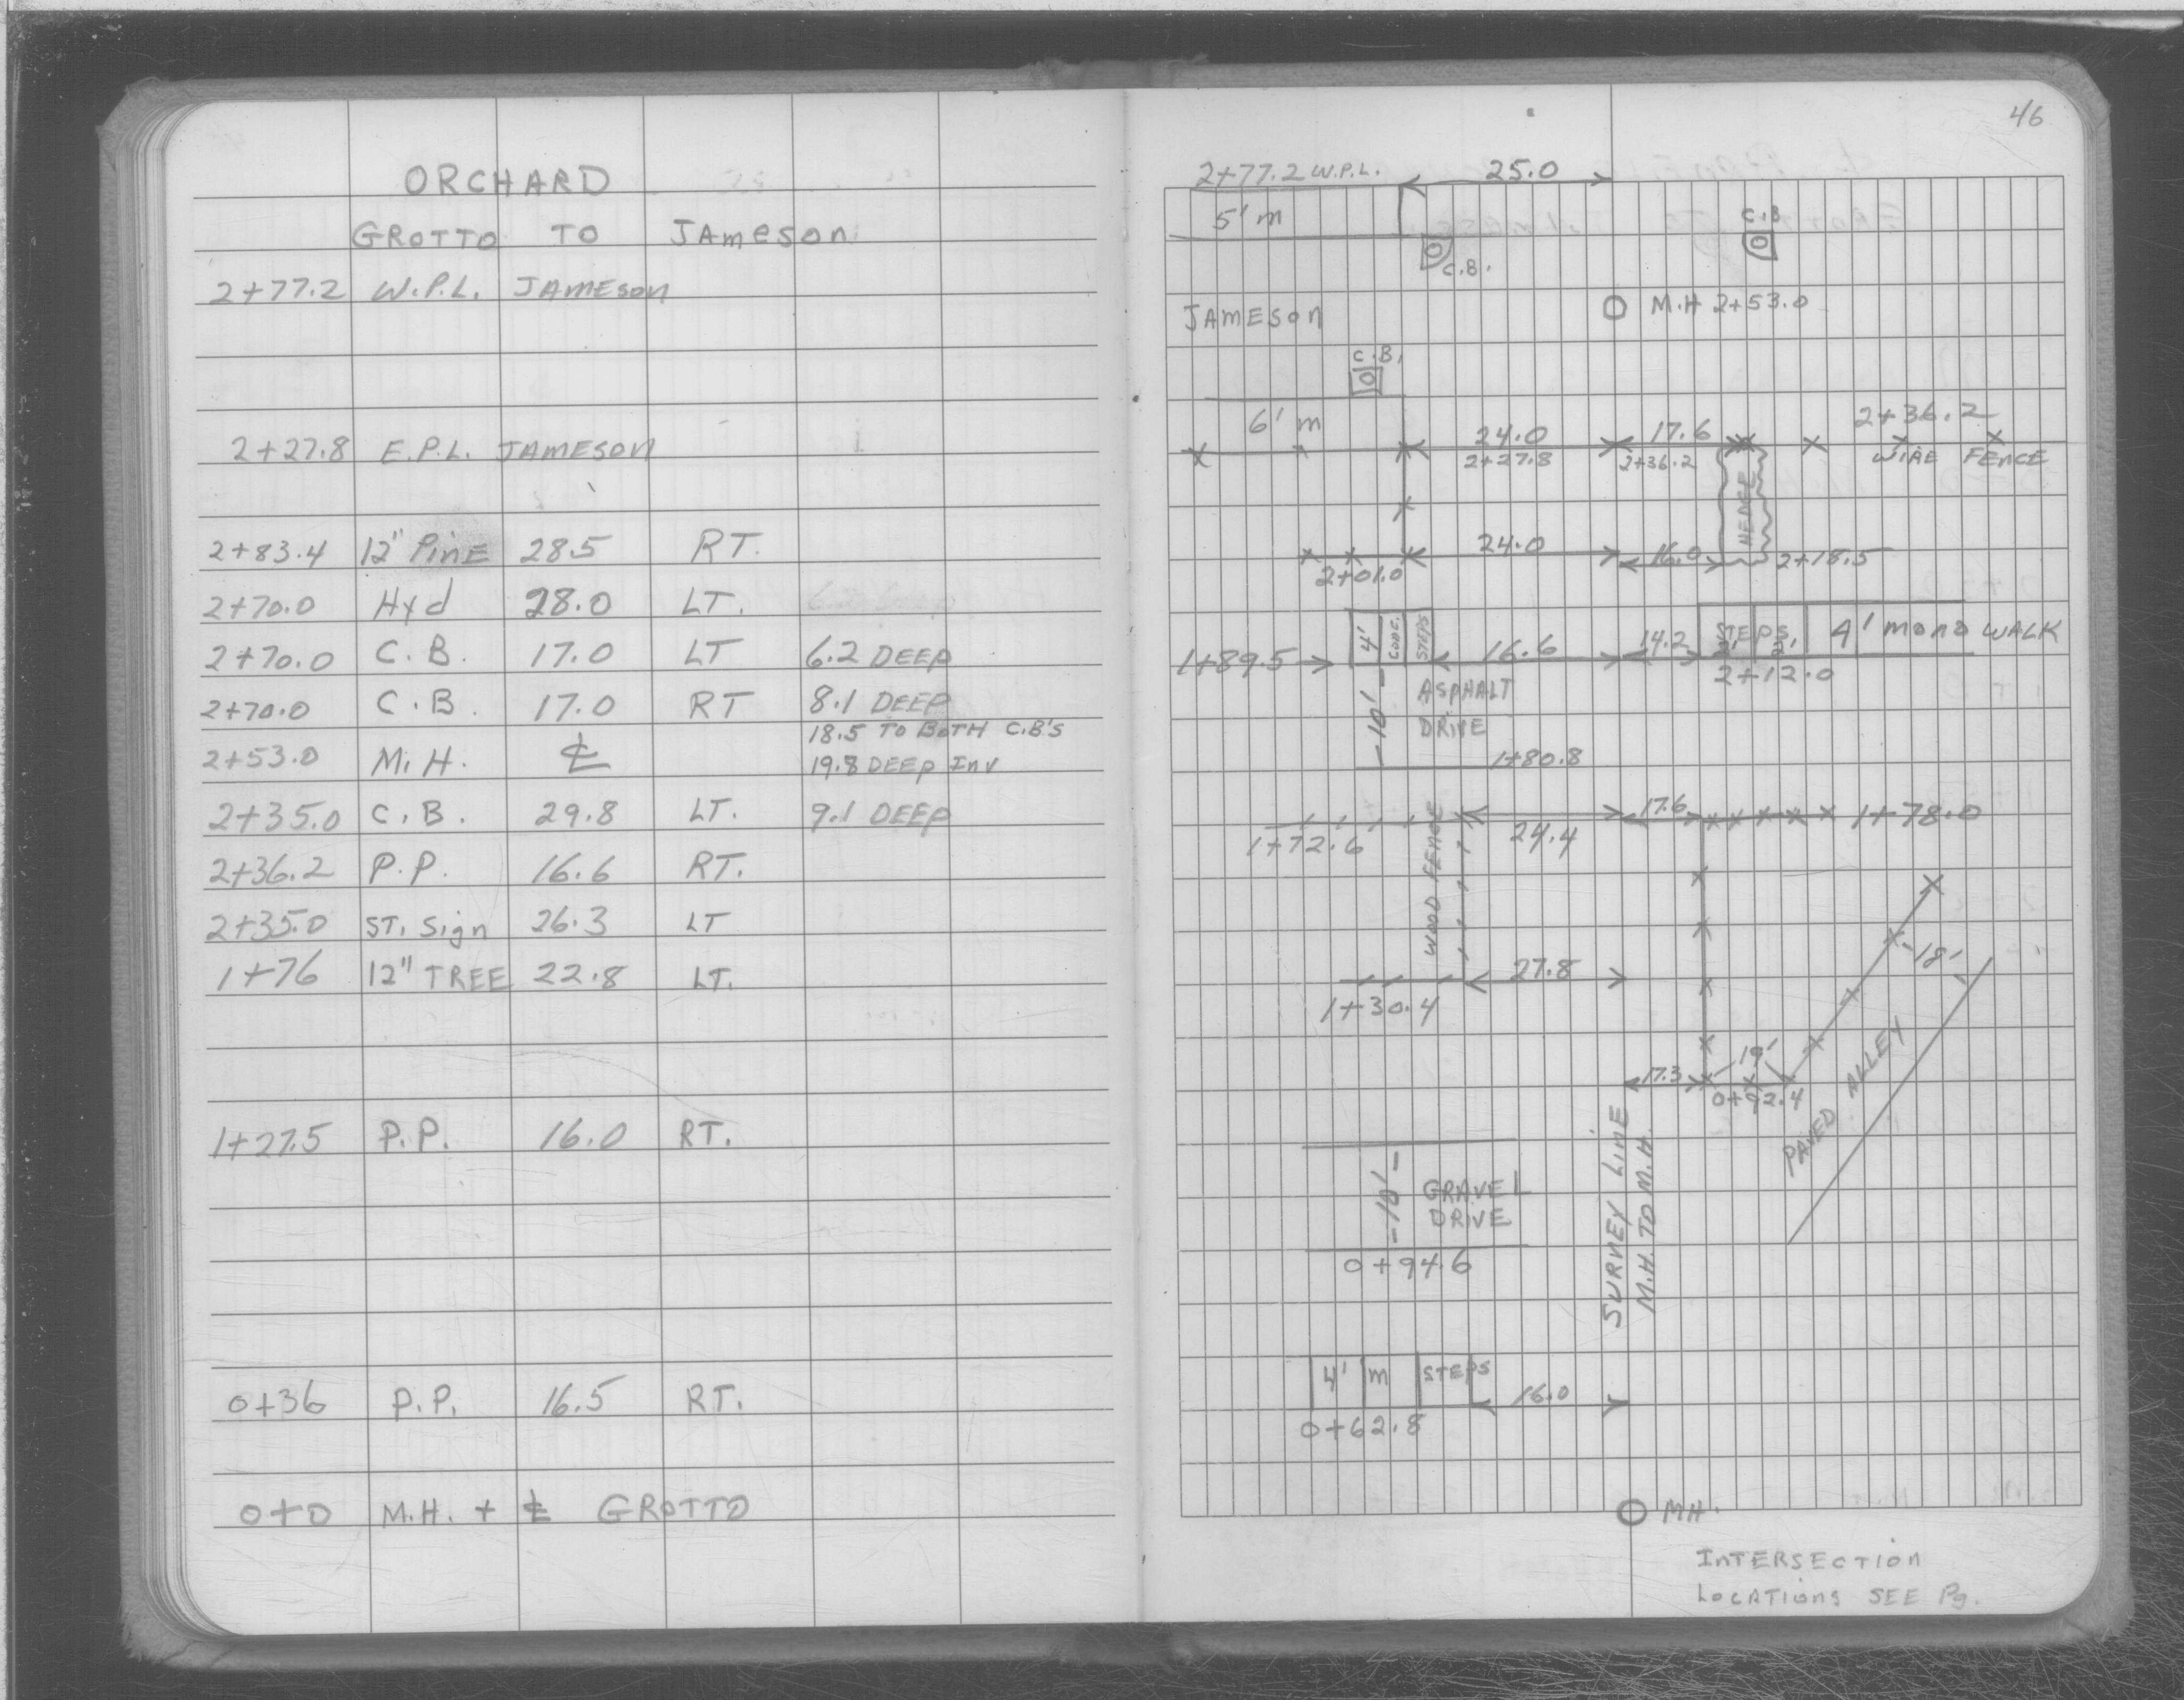 ORCHARD
GROTTO TO JAMESON
2+77.2 W.P.L. JAMESON
2+27.8 E.P.L. JAMESON
2+83.4 12" PINE 28.5 RT.
2+70.0 Hyd 28.0 LT.
2+70.0 C.B. 17.0 LT 6.2 DEEP
2+70.0 C.B. 17.0 RT 8.1 DEEP
18.5 TO BOTH C.B'S
2+53.0 M.H. ℄ 19.8 DEEP INV
2+35.0 C.B. 29.8 LT. 9.1 DEEP
2+36.2 P.P. 16.6 RT.
2+35.0 ST. Sign 26.3 LT
1+76 12" TREE 22.8 LT.
1+27.5 P.P. 16.0 RT.
0+36 P.P. 16.5 RT.
0+0 M.H. + ℄ GROTTO
46
2+77.2 W.P.L. 25.0
5' m
C.B.
C.B.
JAMESON
M.H 2+53.0
C.B.
6' m
24.0
17.6
2+36.2
2+27.8
2+36.2
WIRE FENCE
HEDGE
24.0
16.0
2+18.5
2+01.0
4' CONC. STEPS
1+89.5
16.6
14.2
STEPS
4' mono WALK
2+12.0
-10'-
ASPHALT
DRIVE
1+80.8
17.6
1+78.0
1+72.6
24.4
WOOD FENCE
27.8
1+30.4
-18'-
19'
17.3
0+92.4
PAVED ALLEY
-10'-
GRAVEL
DRIVE
0+94.6
SURVEY LINE
M.H. TO M.H.
4' m STEPS
16.0
0+62.8
MH.
INTERSECTION
LOCATIONS SEE Pg.